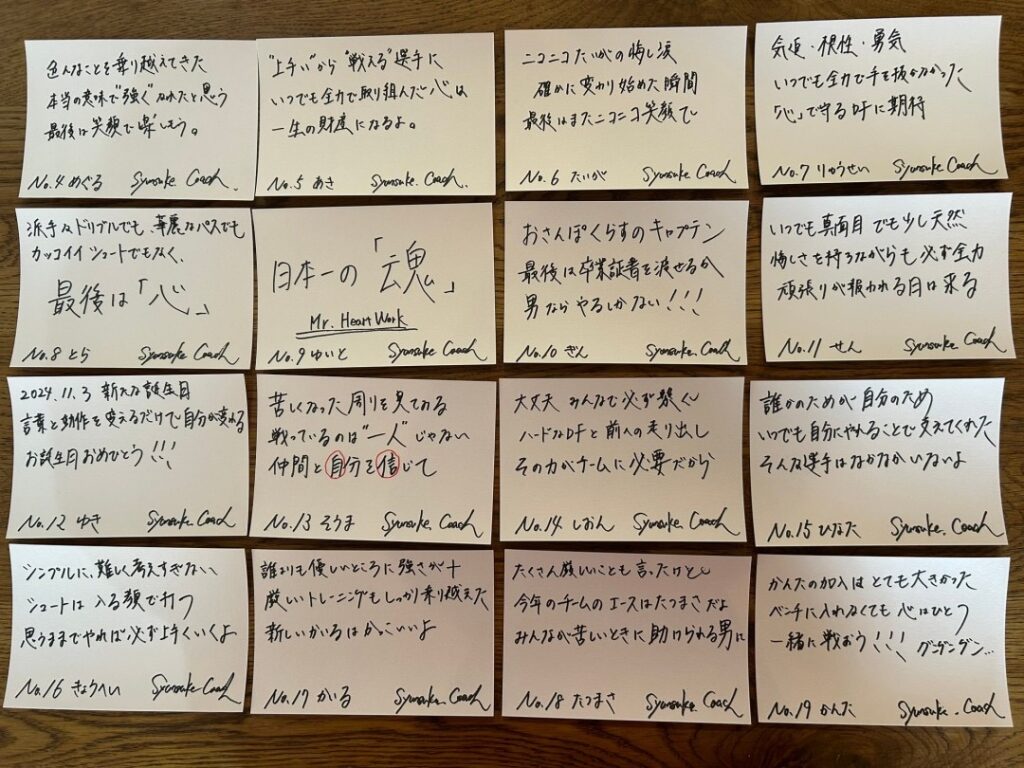 色んなことを乗り越えてきた
本当の意味で"強く"なれたと思う
最後は笑顔で楽しもう。
No.4 めぐる Syunsuke. Coach.
"上手い"から"戦える"選手に
いつでも全力で取り組んだ心は
一生の財産になるよ。
No.5 あさ Syunsuke. Coach.
ニコニコたいがの悔し涙
確かに変わり始めた瞬間
最後はまたニコニコ笑顔で
No.6 たいが Syunsuke. Coach
気迫・根性・勇気
いつでも全力で手を抜かなかった
「心」で守るDFに期待
No.7 りゅうせい Syunsuke. Coach
派手なドリブルでも、華麗なパスでも
カッコイイシュートでもなく、
最後は「心」
No.8 とら Syunsuke. Coach
日本一の「魂」
Mr. Heart Work
No.9 ゆいと Syunsuke. Coach
おさんぽくらすのキャプテン
最後は卒業証書を渡せるか
男ならやるしかない!!!
No.10 ぎん Syunsuke. Coach
いつでも真面目 でも少し天然
悔しさを持ちながらも必ず全力
頑張りが報われる日は来る
No.11 せん Syunsuke. Coach
2024. 11. 3 新たな誕生日
言葉と動作を変えるだけで自分が変わる
お誕生日おめでとう!!!
No.12 ゆき Syunsuke. Coach
苦しくなった周りを見てみる
戦っているのは"一人"じゃない
仲間と自分を信じて
No.13 そうま Syunsuke. Coach
大丈夫 みんなで必ず繋ぐ
ハードなDFと前への走り出し
その力がチームに必要だから
No.14 しおん Syunsuke. Coach
誰かのためが自分のため
いつでも自分にやれることで支えてくれた
そんな選手はなかなかいないよ
No.15 ひなた Syunsuke. Coach
シンプルに、難しく考えすぎない、
シュートは入る顔で打つ
思うままでやれば必ず上手くいくよ
No.16 きょうへい Syunsuke Coach
誰よりも優しいところに強さが+
厳しいトレーニングもしっかり乗り越えた
新しいかいるはかっこいいよ
No.17 かいる Syunsuke. Coach
たくさん厳しいことも言ったけど
今年のチームのエースはたつまさだよ
みんなが苦しいときに助けられる男に
No.18 たつまさ Syunsuke. Coach
かんたの加入はとても大きかった
ベンチに入れなくても心はひとつ
一緒に戦おう!!! グンデンデン...
No.19 かんた Syunsuke. Coach